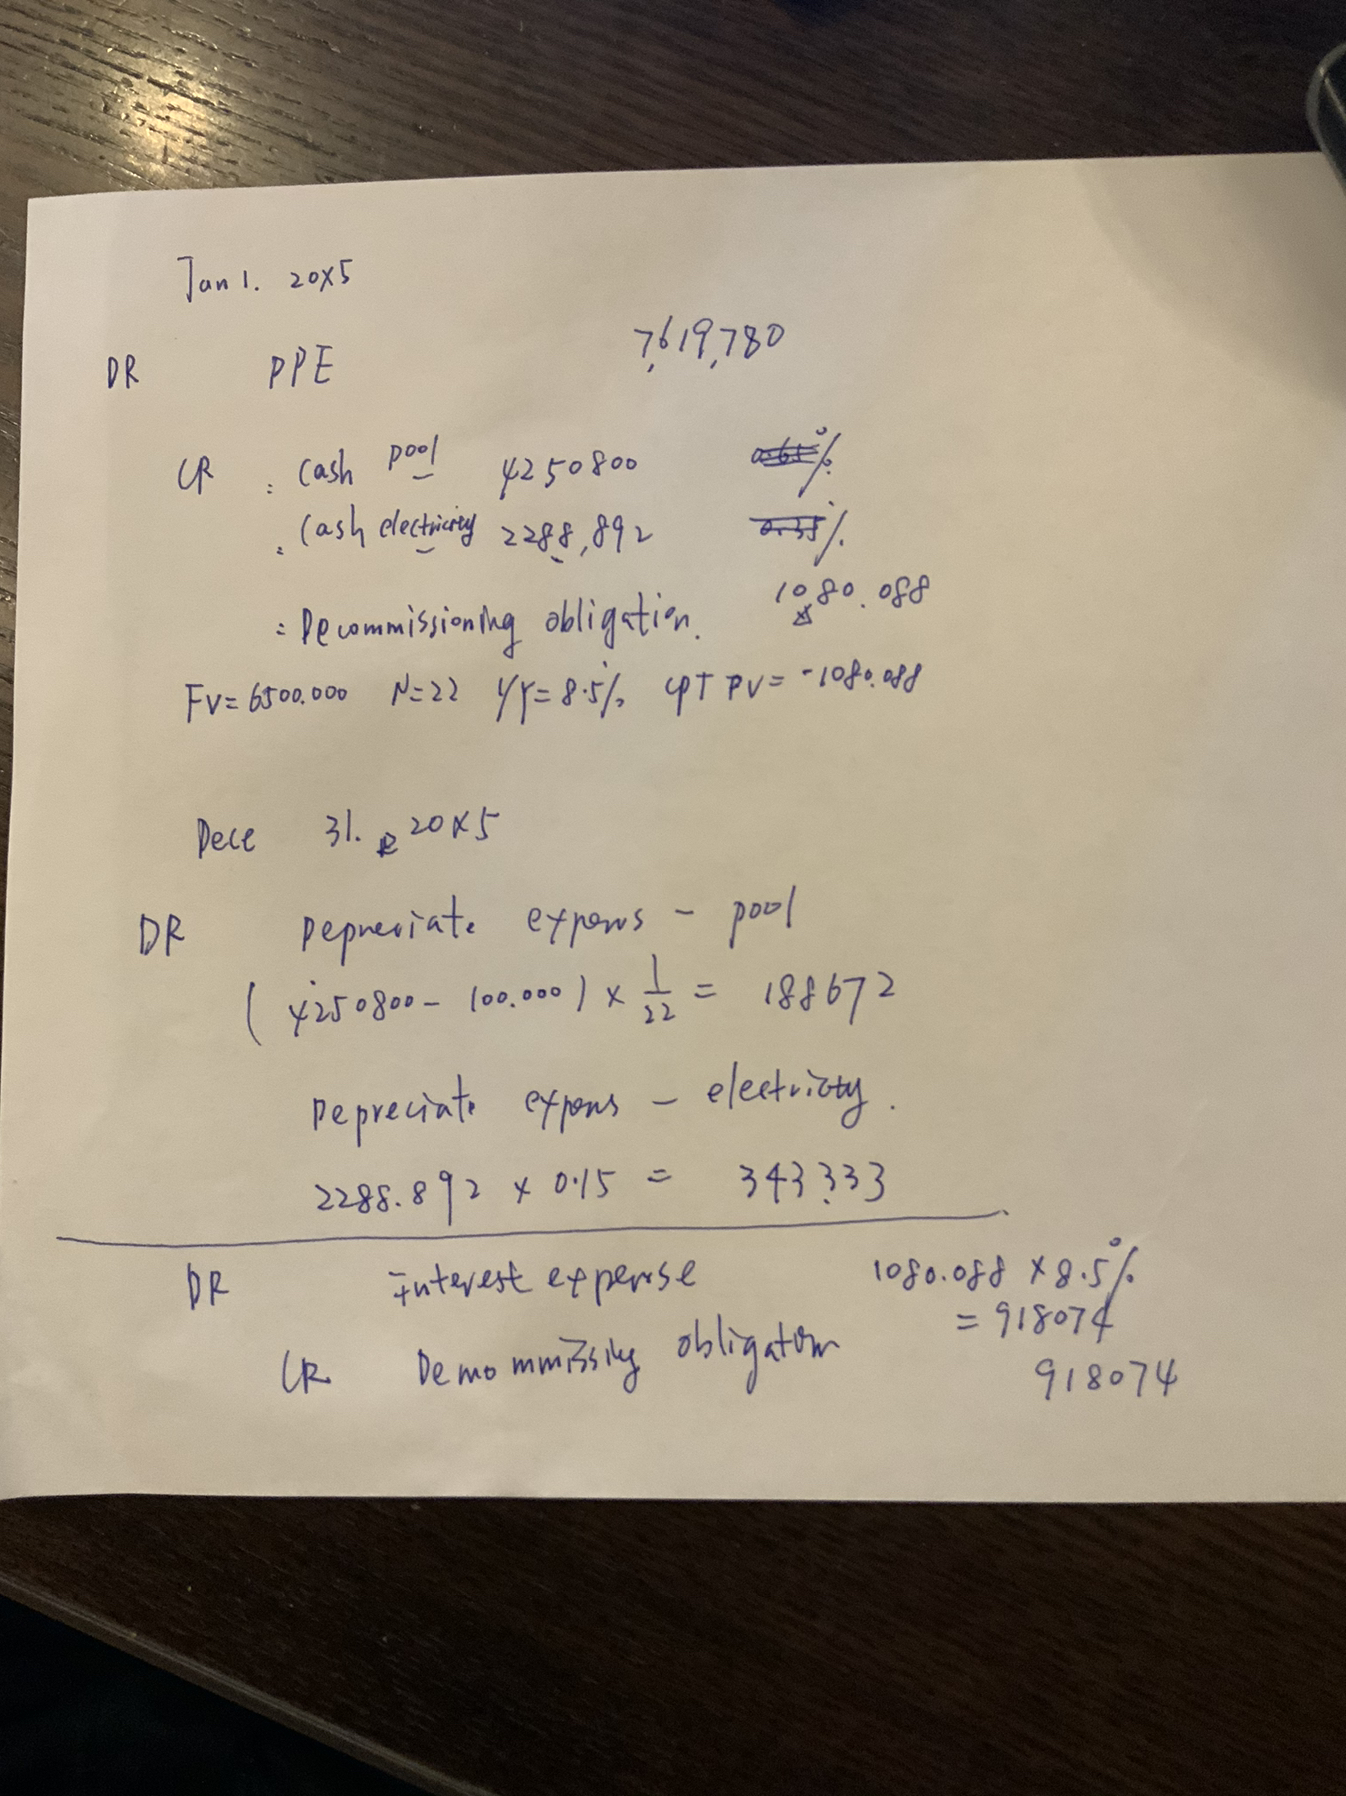 Jan 1. 20X5
DR PPE 7,619,780
CR : Cash pool 4250800
: Cash electricity 2288,892
: Decommissioning obligation. 1080.088
FV=6500.000 N=22 I/Y=8.5% CPT PV= -1080.088
Dece 31. 20X5
DR Depreciate expens - pool
(4250800 - 100.000) × 1/22 = 188672
Depreciate expens - electricity.
2288.892 × 0.15 = 343333
DR Interest expense 1080.088 × 8.5%
= 918074
CR Demommissing obligation
918074